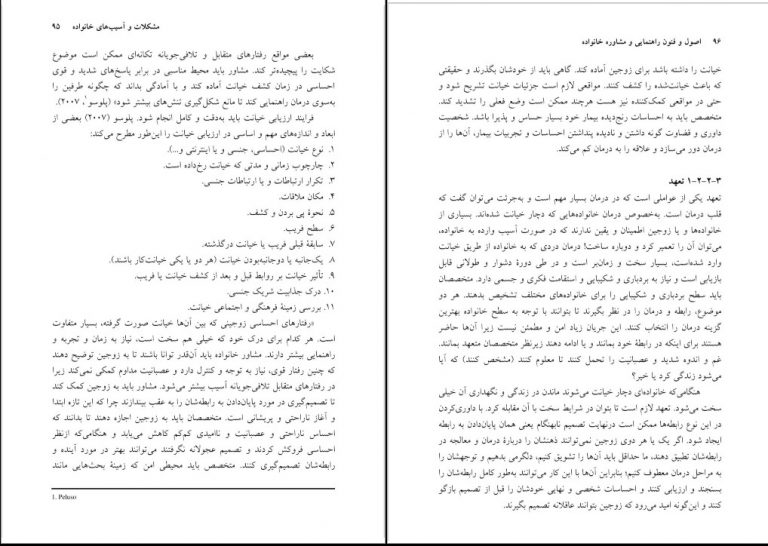 مشکلات و آسیب‌های خانواده ۹۵
بعضی مواقع رفتارهای متقابل و تلافی‌جویانه تکانه‌ای ممکن است موضوع
شکایت را پیچیده‌تر کند. مشاور باید محیط مناسبی در برابر پاسخ‌های شدید و قوی
احساسی در زمان کشف خیانت آماده کند و با آمادگی بداند که چگونه طرفین را
به‌سوی درمان راهنمایی کند تا مانع شکل‌گیری تنش‌های بیشتر شود؛ (پلوسو۱، ۲۰۰۷).
فرایند ارزیابی خیانت باید به‌دقت و کامل انجام شود. پلوسو (۲۰۰۷) بعضی از
ابعاد و اندازه‌های مهم و اساسی در ارزیابی خیانت را این‌طور مطرح می‌کند:
۱. نوع خیانت (احساسی، جنسی و یا اینترنتی و...).
۲. چارچوب زمانی و مدتی که خیانت رخ‌داده است.
۳. تکرار ارتباطات و یا ارتباطات جنسی.
۴. مکان ملاقات.
۵. نحوهٔ پی بردن و کشف.
۶. سطح فریب.
۷. سابقهٔ قبلی فریب یا خیانت درگذشته.
۸. یک‌جانبه یا دوجانبه‌بودن خیانت (هر دو یا یکی خیانت‌کار باشند).
۹. تأثیر خیانت بر روابط قبل و بعد از کشف خیانت یا فریب.
۱۰. درک جذابیت شریک جنسی.
۱۱. بررسی زمینهٔ فرهنگی و اجتماعی خیانت.
«رفتارهای احساسی زوجینی که بین آن‌ها خیانت صورت گرفته، بسیار متفاوت
است. هر کدام برای درک خود که خیلی هم سخت است، نیاز به زمان و تجربه و
راهنمایی بیشتر دارند. مشاور خانواده باید آن‌قدر توانا باشند تا به زوجین توضیح دهند
که چنین رفتار قوی، نیاز به توجه و کنترل دارد و عصبانیت مداوم کمکی نمی‌کند زیرا
در رفتارهای متقابل تلافی‌جویانه آسیب بیشتر می‌شود. مشاور باید به زوجین کمک کند
تا تصمیم‌گیری در مورد پایان‌دادن به رابطه‌شان را به عقب بیندازند چرا که این تازه ابتدا
و آغاز ناراحتی و پریشانی است. متخصصان باید به زوجین اجازه دهند تا بدانند که
احساس ناراحتی و عصبانیت و ناامیدی کم‌کم کاهش می‌یابد و هنگامی‌که ازنظر
احساسی فروکش کردند و تصمیم عجولانه نگرفتند می‌توانند بهتر در مورد آینده و
رابطه‌شان تصمیم‌گیری کنند. متخصص باید محیطی امن که زمینهٔ بحث‌هایی مانند
1. Peluso
۹۶ اصول و فنون راهنمایی و مشاوره خانواده
خیانت را داشته باشد برای زوجین آماده کند. گاهی باید از خودشان بگذرند و حقیقتی
که باعث خیانت‌شده را کشف کنند. مواقعی لازم است جزئیات خیانت تشریح شود و
حتی در مواقعی کمک‌کننده نیز هست هرچند ممکن است وضع فعلی را تشدید کند.
متخصص باید به احساسات رنج‌دیده بیمار خود بسیار حساس و پذیرا باشد. شخصیت
داوری و قضاوت گونه داشتن و نادیده پنداشتن احساسات و تجربیات بیمار، آن‌ها را از
درمان دور می‌سازد و علاقه را به درمان کم می‌کند.
۳-۲-۲-۱ تعهد
تعهد یکی از عواملی است که در درمان بسیار مهم است و به‌جرئت می‌توان گفت که
قلب درمان است. به‌خصوص درمان خانواده‌هایی که دچار خیانت شده‌اند. بسیاری از
خانواده‌ها و یا زوجین اطمینان و یقین ندارند که در صورت آسیب وارده به خانواده،
می‌توان آن را تعمیر کرد و دوباره ساخت! درمان دردی که به خانواده از طریق خیانت
وارد شده‌است، بسیار سخت و زمان‌بر است و در طی دورهٔ دشوار و طولانی قابل
بازیابی است و نیاز به بردباری و شکیبایی و استقامت فکری و جسمی دارد. متخصصان
باید سطح بردباری و شکیبایی را برای خانواده‌های مختلف تشخیص بدهند. هر دو
موضوع، رابطه و درمان را در نظر بگیرند تا بتوانند با توجه به سطح خانواده بهترین
گزینه درمان را انتخاب کنند. این جریان زیاد امن و مطمئن نیست زیرا آن‌ها حاضر
هستند برای اینکه در رابطهٔ خود بمانند و یا ادامه دهند زیرنظر متخصصان متعهد بمانند.
غم و اندوه شدید و عصبانیت را تحمل کنند تا معلوم کنند (مشخص کنند) که آیا
می‌شود زندگی کرد یا خیر؟
هنگامی‌که خانواده‌ای دچار خیانت می‌شوند ماندن در زندگی و نگهداری آن خیلی
سخت می‌شود. تعهد لازم است تا بتوان در شرایط سخت با آن مقابله کرد. با داوری‌کردن
در این نوع رابطه‌ها ممکن است درنهایت تصمیم نابهنگام یعنی همان پایان‌دادن به رابطه
ایجاد شود. اگر یک یا هر دوی زوجین نمی‌توانند ذهنشان را دربارهٔ درمان و معالجه در
رابطه‌شان تطبیق دهند، ما حداقل باید آن‌ها را تشویق کنیم، دلگرمی بدهیم و توجهشان را
به مراحل درمان معطوف کنیم؛ بنابراین آن‌ها با این کار می‌توانند به‌طور کامل رابطه‌شان را
بسنجند و ارزیابی کنند و احساسات شخصی و نهایی خودشان را قبل از تصمیم بازگو
کنند و این‌گونه امید می‌رود که زوجین بتوانند عاقلانه تصمیم بگیرند.